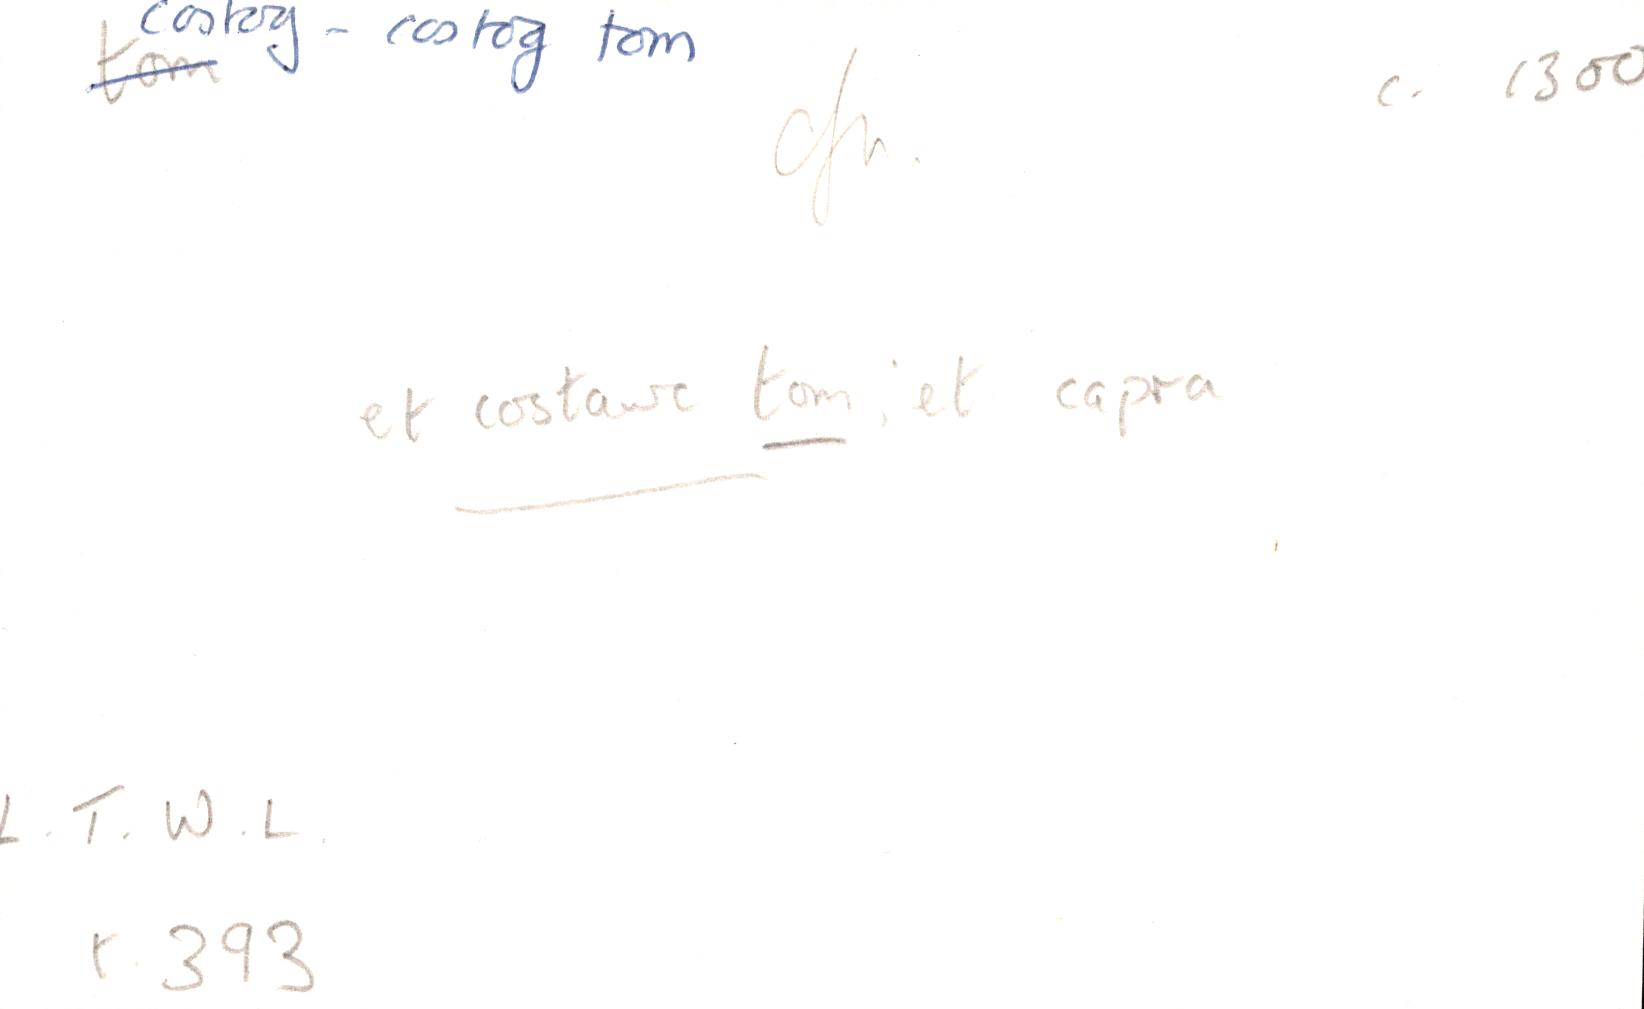 costog - costog tom
tom
c. 1300
cfn.
et costawc tom; et capra
L. T. W. L.
t. 393